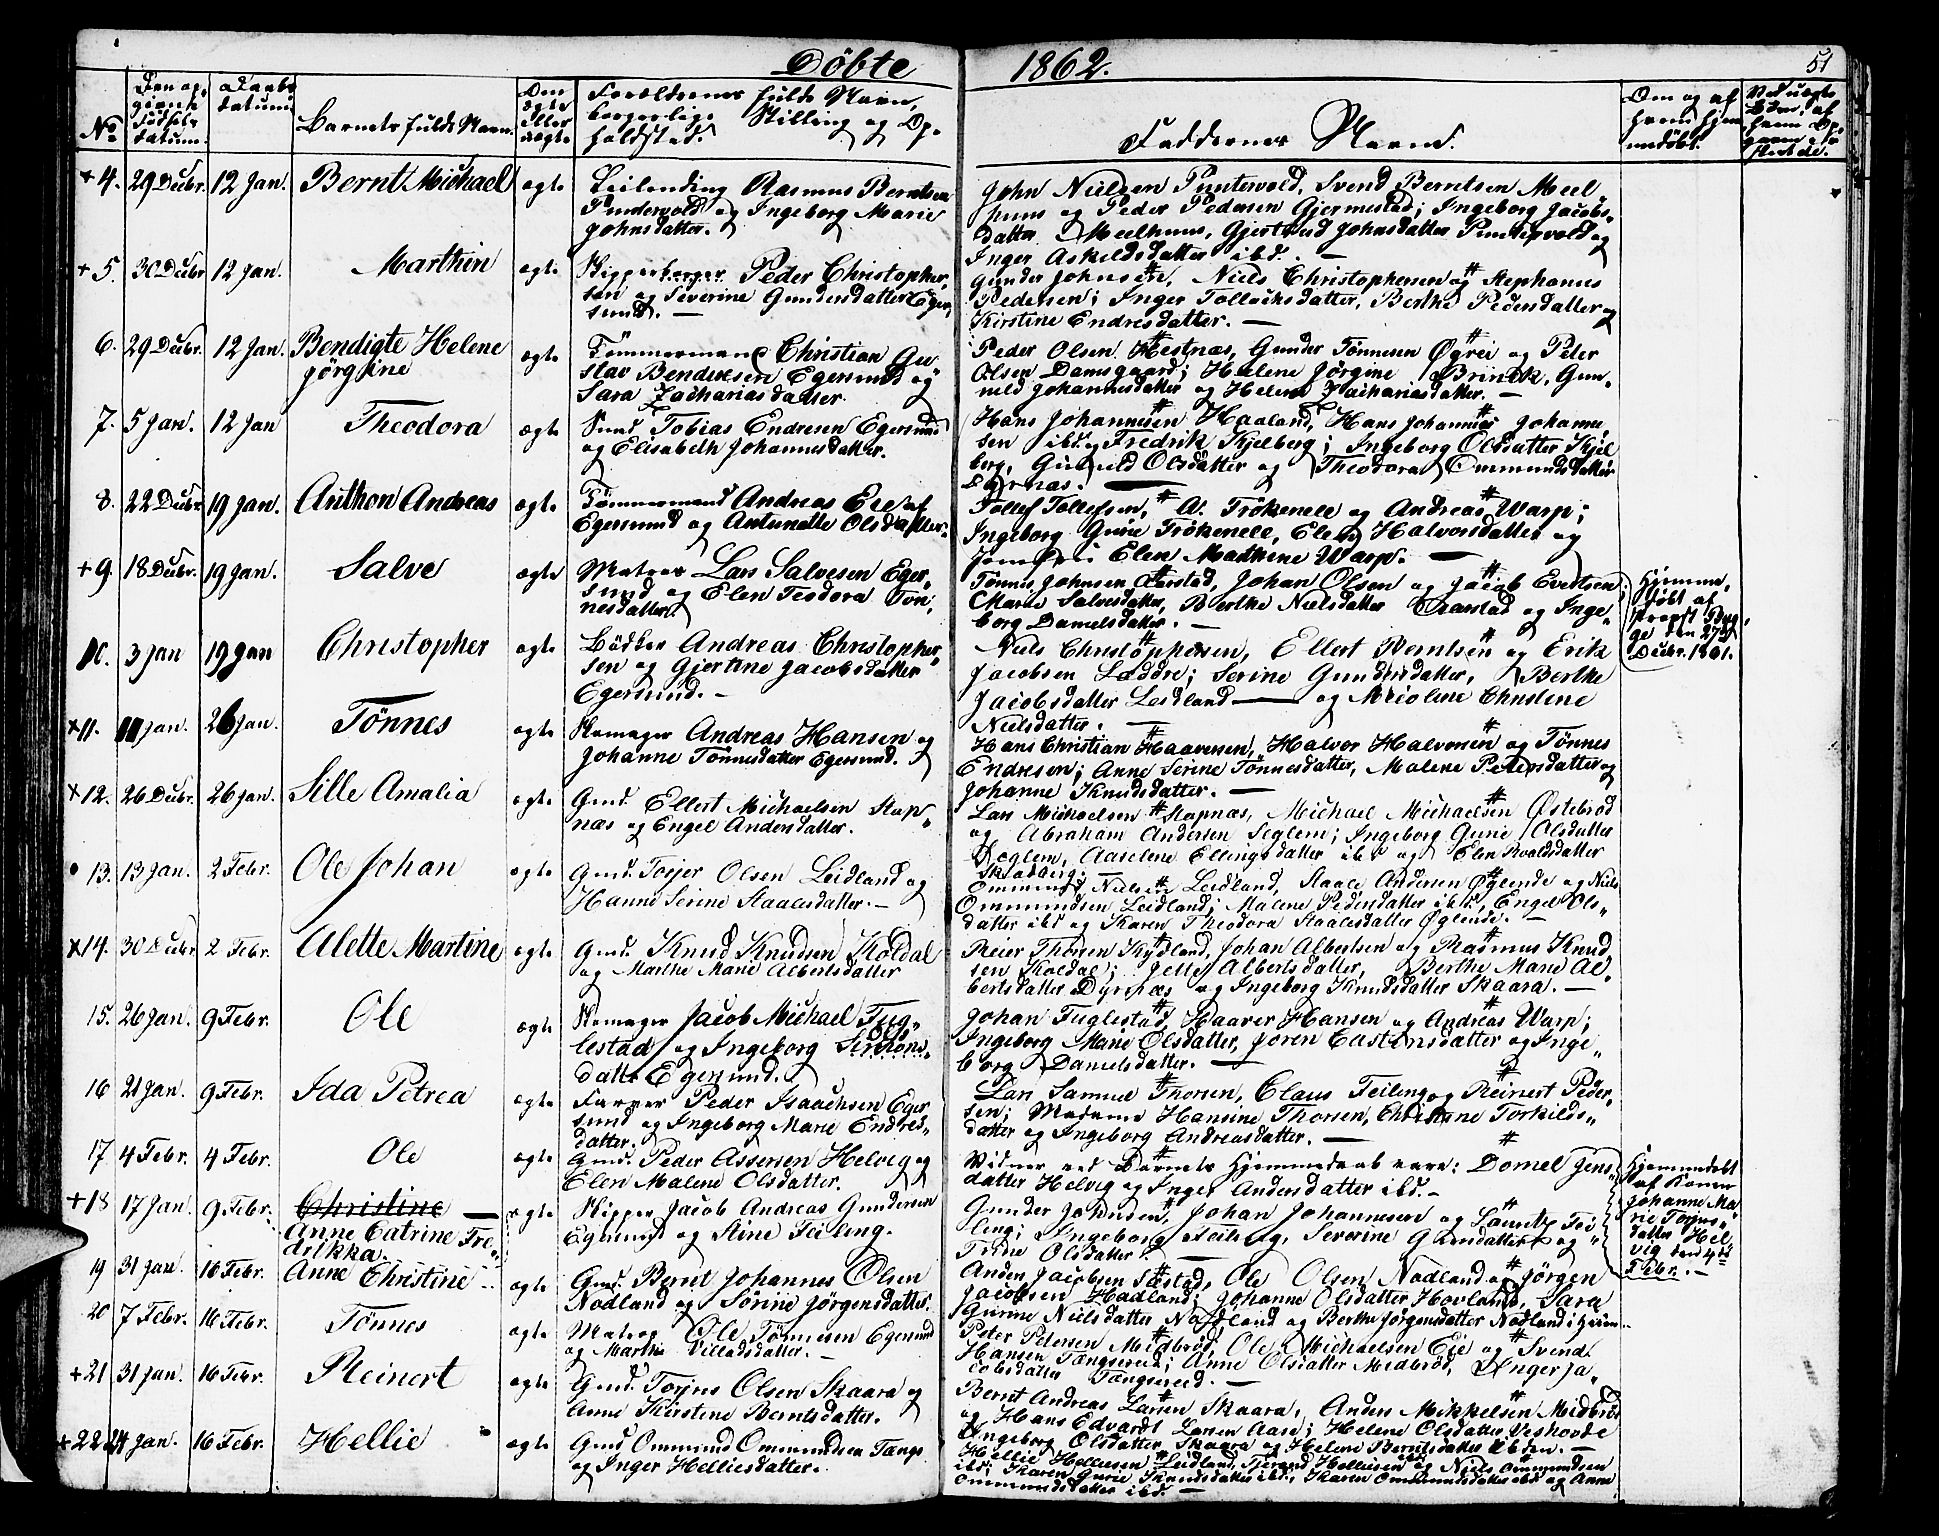 Döbte 1862. 51
No Den opgivne Födsels datum. Daabs datum. Barnets fulde Navn. Om ægte eller uægte Forældrenes fulde Navn, borgerlige Stilling og Opholdsted. Faddernes Navne. Om og af hvem hjemmedöbt.
+4. 29 Decbr. 12 Jan. Bernt Michael ægte Leilending Rasmus Berntsen
Puntervold og Ingeborg Marie
Johnsdatter.
John Nielsen Puntervold, Svend Berntsen Meel
huus og Peder Pedersen Gjermestad; Ingeborg Jacobs
datter Meelhuus, Gjertrud Johnsdatter Puntervold og
Inger Askildsdatter ibd. —
+5. 30 Decbr 12 Jan. Marthin ægte Skipperborger Peder Christopher,
sen og Severine Gundersdatter Eger,
sund. —
Gunder Johnsen, Niels Christophersen og Stephanus
Pedersen; Inger Tollachsdatter, Berthe Pedersdatter og
Kirstine Endresdatter. —
6. 29 Decbr. 12 Jan. Bendigte Helene
Jörgine ægte Tömmermand Christian Gu
stav Bendixsen Egersund og
Sara Zachariasdatter
Peder Olsen Hestnæs, Gunder Tönnesen Øgrei og Peter
Olsen Damsgaard; Helene Jörgine Brinck, Gun
nild Johannesdatter og Helene Zachariasdatter. —
7. 5 Jan. 12 Jan Theodora ægte Smed Tobias Endresen Egersund
og Elisabeth Johannesdatter.
Hans Johannesen Haaland, Hans Johannes Johanne,
sen ibd. og Fredrik Kjelberg; Ingeborg Olsdatter Kjel
berg, Gunild Olsdatter og Theodora Ommundsdatter
Dyrnæs. —
8. 22 Decbr 19 Jan. Anthon Andreas ægte Tömmermand Andreas Eie af
Egersund og Antonette Olsdatter.
Tollef Tollefsen, A. Trökenele og Andreas Warp;
Ingeborg Gurie Trökenele, Elen Halvorsdatter og
Jomfru Elen Mathine Warp. —
+9. 18 Decbr. 19 Jan. Salve ægte Matros Lars Salvesen Eger,
sund og Elen Teodora Tön,
nesdatter.
Tönnes Johnsen Aarstad, Johan Olsen og Jacob Evertsen;
Marie Salvesdatter, Berthe Nielsdatter Aarstad og Inge,
borg Danielsdatter. —
Hjemme,
döbt af
Provst Byg,
ge den 27de
Decbr. 1861.
10. 3 Jan 19 Jan Christopher ægte Bödker Andreas Christopher,
sen og Gjertine Jacobsdatter
Egersund. —
Niels Christophersen, Ellert Berntsen og Erik
Jacobsen Læddre; Serine Gundersdatter, Berthe
Jacobsdatter Leidland — og Meiolene Christene
Nielsdatter. —
×11. 11 Jan. 26 Jan. Tönnes ægte Skomager Andreas Hansen og
Johanne Tönnesdatter Egersund.
Hans Christian Haaversen, Halvor Halvorsen og Tönnes
Endresen; Anne Serine Tönnesdatter, Malene Petersdatter og
Johanne Knudsdatter. —
×12. 26 Decbr. 26 Jan. Sille Amalia ægte Gmd. Ellert Michaelsen Stap,
næs og Engel Andersdatter.
Lars Michaelsen Stapnæs, Michael Michaelsen Østebröd
og Abraham Andersen Seglem; Ingeborg Gurie Olsdatter
Seglem, Aaselene Ellingsdatter ibd og Elen Roaldsdatter
Skadberg. —
13. 13 Jan. 2 Febr. Ole Johan ægte Gmd. Torjer Olsen Leidland og
Hanne Serine Staalesdatter. —
Ommund Nielsen Leidland, Staale Andersen Øglende og Niels
Ommundsen Leidland; Malene Pedersdatter ibd, Engel Ols,
datter ibd og Karen Theodora Staalesdatter Øglende. —
×14. 30 Decbr 2 Febr. Alette Martine ægte Gmd. Knud Knudsen Koldal
og Marthe Marie Albertsdatter
Reier Thorsen Kydland, Johan Albertsen og Rasmus Knud
sen Koldal; Jette Albertsdatter, Berthe Marie Al
bertsdatter Dyrnæs og Ingeborg Knudsdatter Skaara. —
15. 26 Jan. 9 Febr. Ole ægte Skomager Jacob Michael Fug,
lestad og Ingeborg Simons,
datter Egersund.
Johan Fuglestad, Haaver Hansen og Andreas Warp;
Ingeborg Marie Olsdatter, Joren Eastensdatter og Inge,
borg Danielsdatter. —
16 21 Jan. 9 Febr. Ida Petrea ægte Farver Peder Isaachsen Eger
sund og Ingeborg Marie Endres,
datter.
Lars Samuel Thorsen, Claus Feiling og Reinert Peder
sen; Madame Hansine Thorsen, Christine Torkilds,
datter og Ingeborg Andreasdatter. —
17 4 Febr. 4 Febr. Ole ægte Gmd. Peder Assersen Helvig og
Elen Malene Olsdatter.
Vidner ved Barnets Hjemmedaab vare: Dornel Jens,
datter Helvig og Inger Andersdatter ibd. —
Hjemmedöbt
af Konen
Johanne Ma,
rie Torjus,
datter Hel
vig den 4de
Febr. —
+18 17 Jan. 9 Febr. Christine —
Anne Catrine Fre,
drikka. ægte Skipper Jacob Andreas Gundersen
Egersund og Stine Feiling.
Gunder Johnsen, Johan Johannesen og Lauritz Fei
ling; Ingeborg Feiling, Severine Gundersdatter og
Trine Olsdatter. —
19 31 Jan. 16 Febr. Anne Christine ægte Gmd. Bernt Johannes Olsen
Nodland og Sörine Jörgensdatter.
Anders Jacobsen Sæstad, Ole Olsen Nodland og Jörgen
Jacobsen Hadland; Johanne Olsdatter Hovland, Sara
Gurine Nielsdatter Nodland og Berthe Jörgensdatter Nodland
20 7 Febr. 16 Febr. Tönnes ægte Matros Ole Tönnesen Egersund
og Marthe Villadsdatter. —
Peter Petersen Midbröd, Ole Michaelsen Eie og Svend
Hansen Tængsereid; Anne Olsdatter Midbröd, Inger Ja,
cobsdatter Tængsereid. —
+21 31 Jan. 16 Febr. Reinert ægte Gmd. Torjus Olsen Skaara og
Anne Kirstine Berntsdatter.
Bernt Andreas Larsen Skaara, Anders Mikkelsen Midbröd
og Hans Edvardt Larsen Aase; Helene Olsdatter Veshovde
Ingeborg Olsdatter Skaara og Helene Berntsdatter ibden. —
+22 24 Jan. 16 Febr. Hellie ægte Gmd Ommund Ommundsen Tengs
og Inger Helliesdatter.
Hellie Helliesen Leidland, Tjerand Helliesen og Niels Ommundsen
ibd; Karen Gurie Knudsdatter ibd, Karen Ommundsdatter ibd og Anne
Ommundsdatter ibd. —